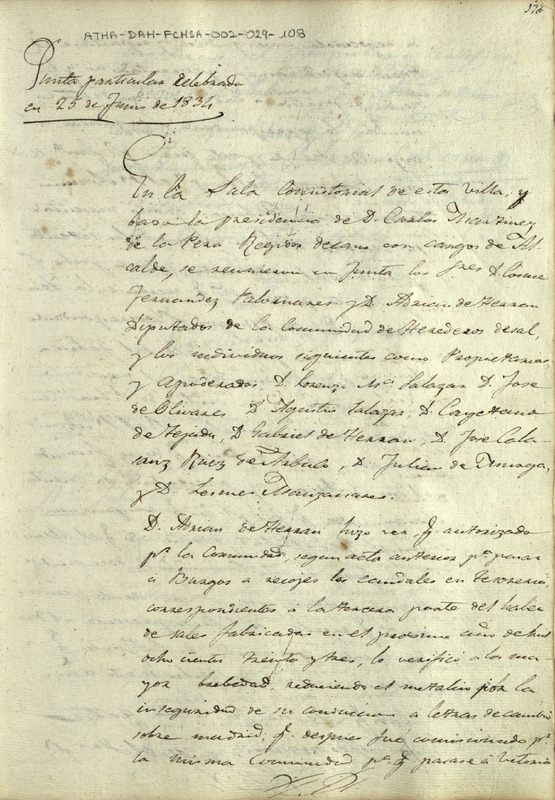 ATHA-DAH-FCHSA-002-029-108
Junta particular celebrada
en 25 de Junio de 1834
En la Sala Consistorial de esta villa, y
baxo la presidencia de D. Carlos Martinez
de la Pera Regidor decano con cargos de Al
calde, se reunieron en Junta los Sres D. Cosme
Fernandez Palomares y D. Adrian de Herran
Diputados de la Comunidad de Herederos de sal,
y los individuos siguientes como Propietarios
y apoderados, D. Lorenzo Ma Salazar D. Jose
de Olivares D. Agustin Salazar, D. Cayetano
de Tejada, D. Gabriel de Herran, D. Jose Cala
sanz Ruiz de Arbulo, D. Julian de
y D. Lesmes Manzanares.
D. Adrian de Herran hizo ver q. autorizado
pr. la Comunidad, segun acta anterior pa. pasar
a Burgos a recojer los caudales en Tesoreria
correspondientes á la tercera parte del haber
de sales fabricadas en el proximo año de mil
ocho cientos treinta y tres, lo verificó a la ma
yor brebedad, reduciendo el metalico por la
inseguridad de su conduccion a letras de cambio
sobre Madrid; q. despues fue comisionado pr.
la misma Comunidad pa. q. pasase á Vitoria